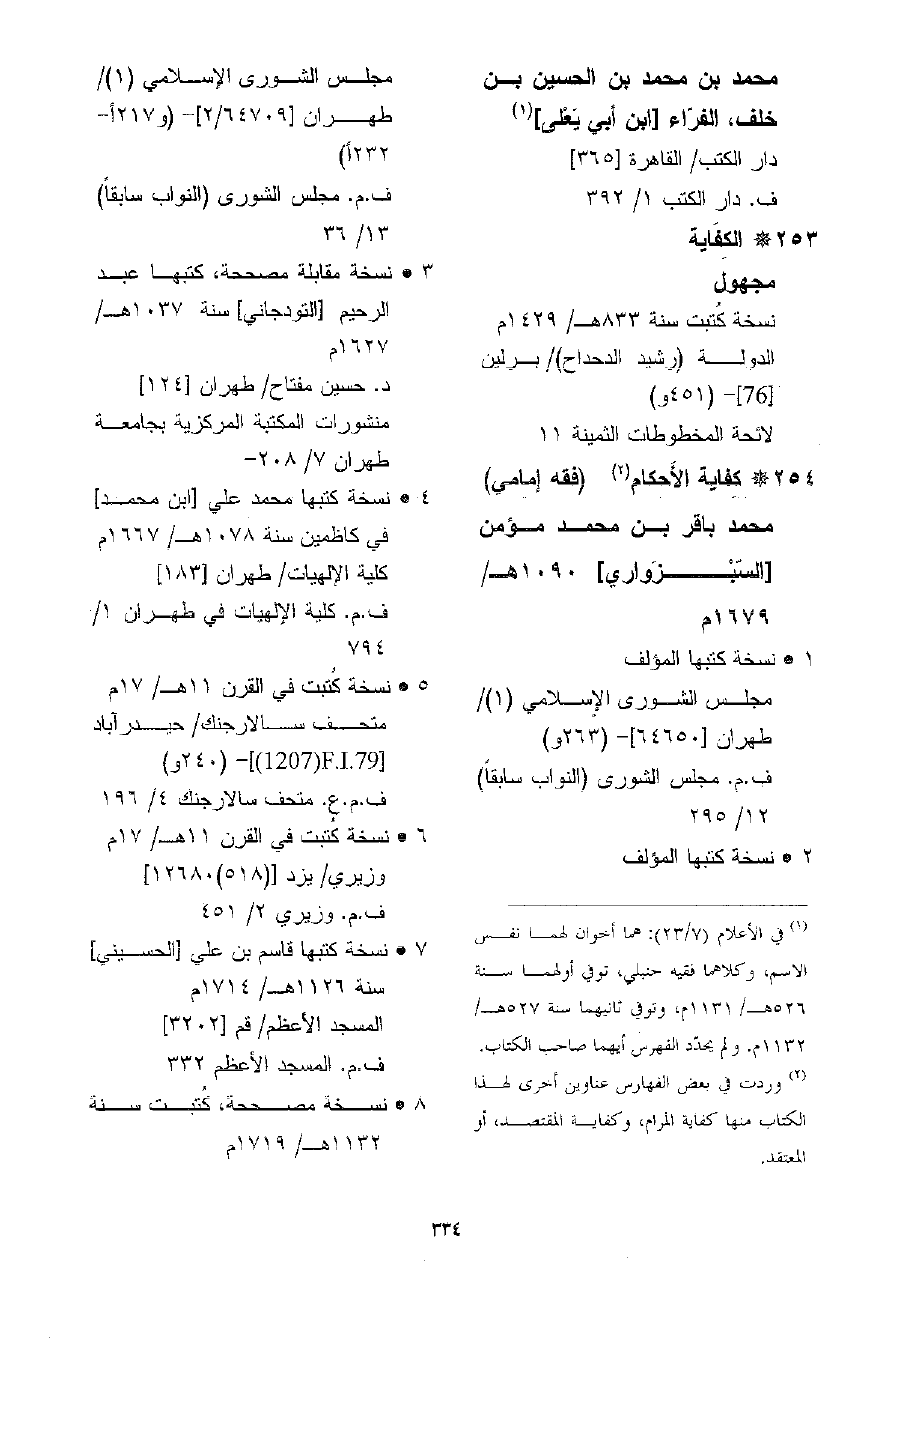 محمد بن محمد بن الحسين بن
خلف، الفرّاء [ابن أبي يَعْلى](١)
دار الكتب/ القاهرة [٣٦٥]
ف. دار الكتب ١/ ٣٩٢
٢٥٣ * الكفَاية
مجهول
نسخة كُتبت سنة ٨٣٣هـ/ ١٤٢٩م
الدولة (رشيد الدحداح)/ برلين
[76]– (٤٥١و)
لائحة المخطوطات الثمينة ١١
٢٥٤ * كفاية الأحكام(٢) (فقه إمامي)
محمد باقر بن محمد مؤمن
[السّبْزواري] ١٠٩٠هـ/
١٦٧٩م
١ • نسخة كتبها المؤلف
مجلس الشورى الإسلامي (١)/
طهران [٦٤٦٥٠]– (٢٦٣و)
ف.م. مجلس الشورى (النواب سابقاً)
١٢/ ٢٩٥
٢ • نسخة كتبها المؤلف
(١) في الأعلام (٢٣/٧): هما أخوان لهما نفس
الاسم، وكلاهما فقيه حنبلي، توفي أولهما سنة
٥٢٦هـ/ ١١٣١م، وتوفي ثانيهما سنة ٥٢٧هـ/
١١٣٢م. ولم يحدّد الفهرس أيهما صاحب الكتاب.
(٢) وردت في بعض الفهارس عناوين أخرى لهذا
الكتاب منها كفاية المرام، وكفاية المقتصد، أو
المعتقد.
مجلس الشورى الإسلامي (١)/
طهران [٢/٦٤٧٠٩]– (و٢١٧أ–
٢٣٢أ)
ف.م. مجلس الشورى (النواب سابقاً)
١٣/ ٣٦
٣ • نسخة مقابلة مصححة، كتبها عبد
الرحيم [التودجاني] سنة ١٠٣٧هـ/
١٦٢٧م
د. حسين مفتاح/ طهران [١٢٤]
منشورات المكتبة المركزية بجامعة
طهران ٧/ ٢٠٨–
٤ • نسخة كتبها محمد علي [ابن محمد]
في كاظمين سنة ١٠٧٨هـ/ ١٦٦٧م
كلية الإلهيات/ طهران [١٨٣]
ف.م. كلية الإلهيات في طهران ١/
٧٩٤
٥ • نسخة كُتبت في القرن ١١هـ/ ١٧م
متحف سالارجنك/ حيدرآباد
[(1207)F.I.79]– (٢٤٠و)
ف.م.ع. متحف سالارجنك ٤/ ١٩٦
٦ • نسخة كُتبت في القرن ١١هـ/ ١٧م
وزيري/ يزد [(٥١٨)١٢٦٨٠]
ف.م. وزيري ٢/ ٤٥١
٧ • نسخة كتبها قاسم بن علي [الحسيني]
سنة ١١٢٦هـ/ ١٧١٤م
المسجد الأعظم/ قم [٣٢٠٢]
ف.م. المسجد الأعظم ٣٣٢
٨ • نسخة مصححة، كُتبت سنة
١١٣٢هـ/ ١٧١٩م
٣٣٤